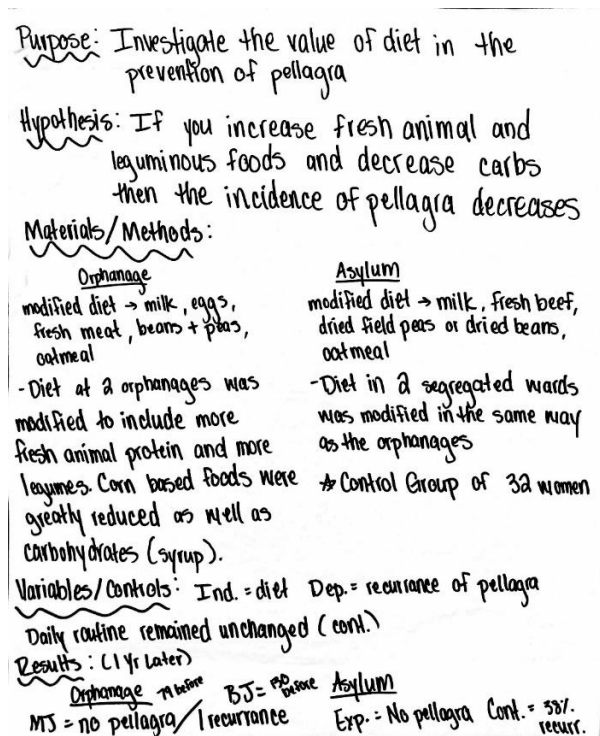 Purpose: Investigate the value of diet in the
prevention of pellagra
Hypothesis: If you increase fresh animal and
leguminous foods and decrease carbs
then the incidence of pellagra decreases
Materials/Methods:
Orphanage
modified diet → milk, eggs,
fresh meat, beans + peas,
oatmeal
- Diet at 2 orphanages was
modified to include more
fresh animal protein and more
legumes. Corn based foods were
greatly reduced as well as
carbohydrates (syrup).
Asylum
modified diet → milk, fresh beef,
dried field peas or dried beans,
oatmeal
- Diet in 2 segregated wards
was modified in the same way
as the orphanages
☆ Control Group of 32 women
Variables/Controls: Ind. = diet Dep. = recurrance of pellagra
Daily routine remained unchanged (cont.)
Results: (1 yr later)
Orphanage 79 before BJ = 130 before Asylum
MJ = no pellagra / 1 recurrance Exp. = No pellagra Cont. = 38%
recurr.